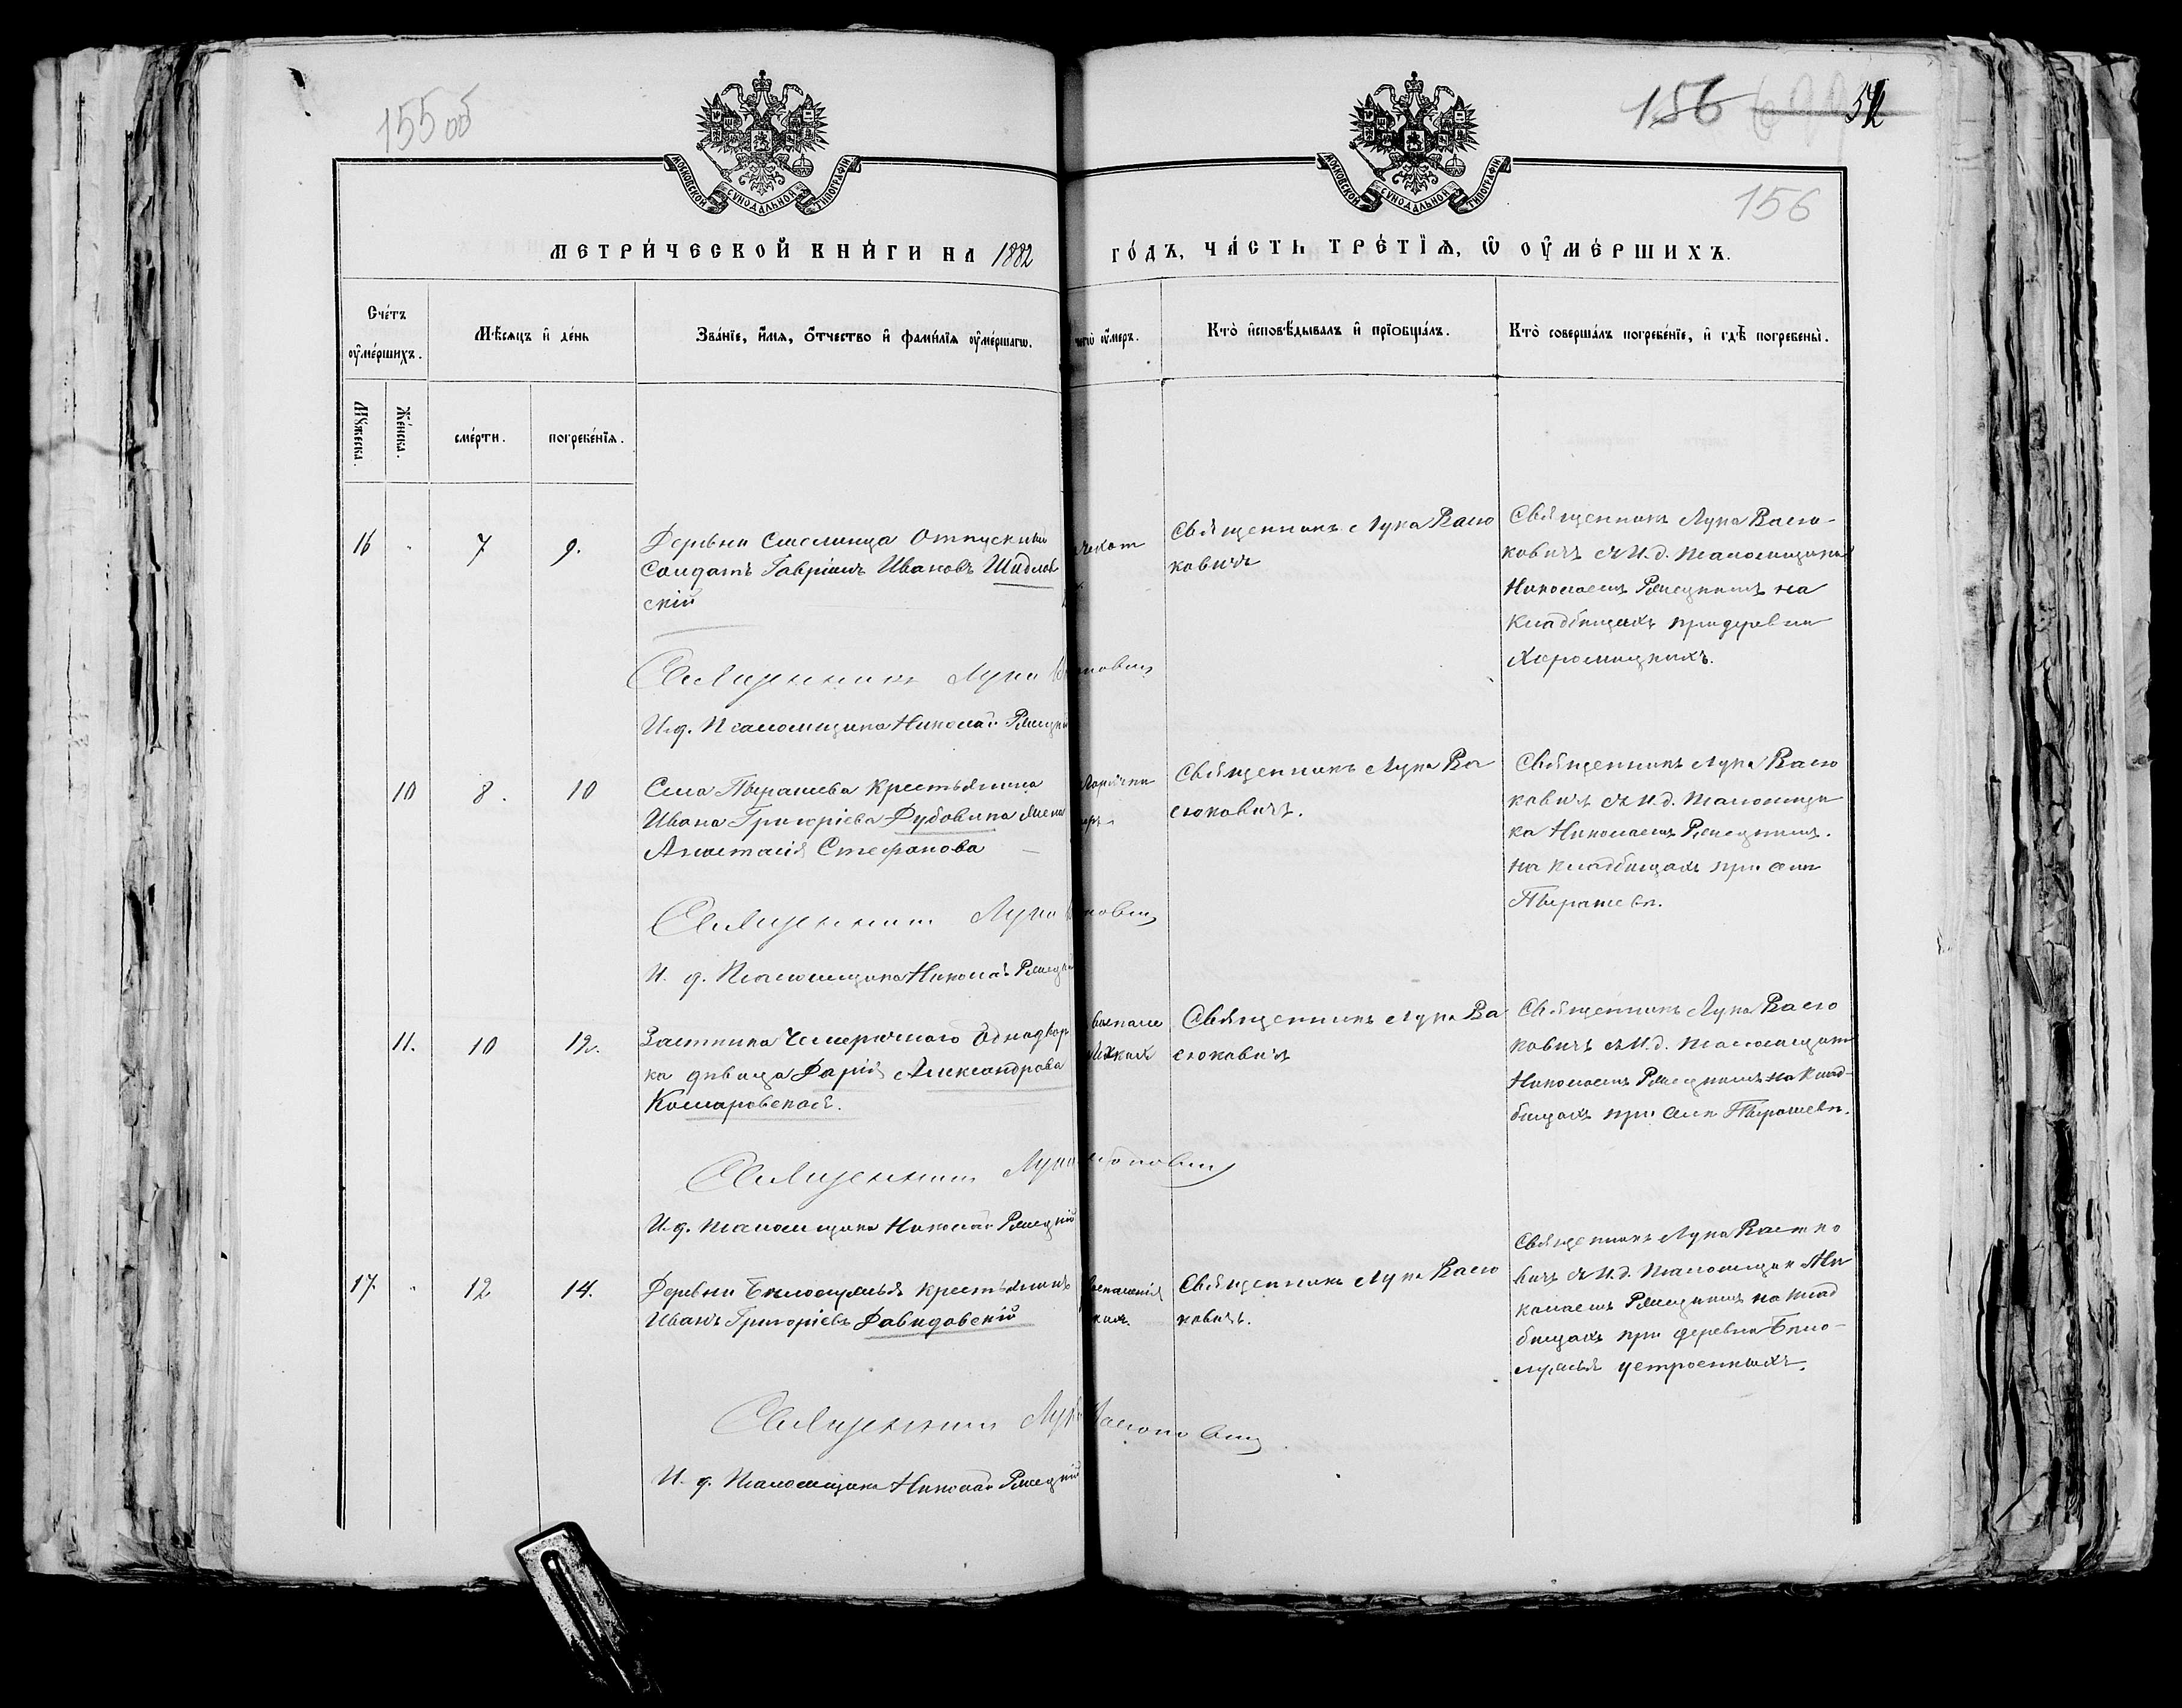 155 об
156
52
156
МОСКОВСКОЙ СѴНОДАЛЬНОЙ ТИПОГРАФІИ
МОСКОВСКОЙ СѴНОДАЛЬНОЙ ТИПОГРАФІИ
МЕТРИ́ЧЕСКОЙ КНИ́ГИ НА 1882 ГО́ДЪ, ЧА́СТЬ ТРЕ́ТІѦ, Ѡ ОУМЕ́РШИХЪ.
Сче́тъ оуме́ршихъ.
Мꙋ́жеска.
Же́нска.
Мѣ́сяцъ и де́нь
сме́рти.
погребе́нїѧ.
Зва́нїе, и́мѧ, о́тчество и фами́лїѧ оуме́ршагѡ.
чегѡ̀ оу́меръ.
Кто̀ и҆сповѣ́дывалъ и пріобща́лъ.
Кто̀ соверша́лъ погребе́нїе, и гдѣ̀ погребены̀.
16 " 7 9.
Деревни Смолица Отпускный
солдатъ Гавріилъ Ивановъ Шидлов
скій
Священникъ Лука Васю
ковичъ
Священникъ Лука Васю-
ковичъ съ И.д. псаломщика
Николаемъ на
кладбищахъ при деревни
Священникъ Лука Васюковичъ
И.д. Псаломщика Николай
10 8. 10
Села Пырашева крестьянина
Ивана Григоріева Дубовика жена
Анастасія Стефанова
Священникъ Лука Ва
сюковичъ.
Священникъ Лука Васю
ковичъ съ И.д. псаломщи
ка Николаемъ
на кладбищахъ при селѣ
Пырашевѣ.
Священникъ Лука Васюковичъ
И. д. Псаломщика Николай
11. 10 12.
Застѣнка Однодвор
ка дѣвица Дарія Александрова
Комаровская.
Священникъ Лука Ва
сюковичъ
Священникъ Лука Васю
ковичъ съ И.д. псаломщика
Николаемъ на клад-
бищахъ при селѣ Пырашевѣ.
Священникъ Лука Васюковичъ
И.д. псаломщика Николай
17. " 12 14.
Деревни крестьянинъ
Иванъ Григоріевъ Давидовскій
воспаленія
Священникъ Лука Васю
ковичъ.
Священникъ Лука Васюко
вичъ съ И.д. псаломщик Ни
колаемъ на клад
бищахъ при деревни
устроенныхъ.
Священникъ Лука Васюковичъ
И. д. псаломщика Николай